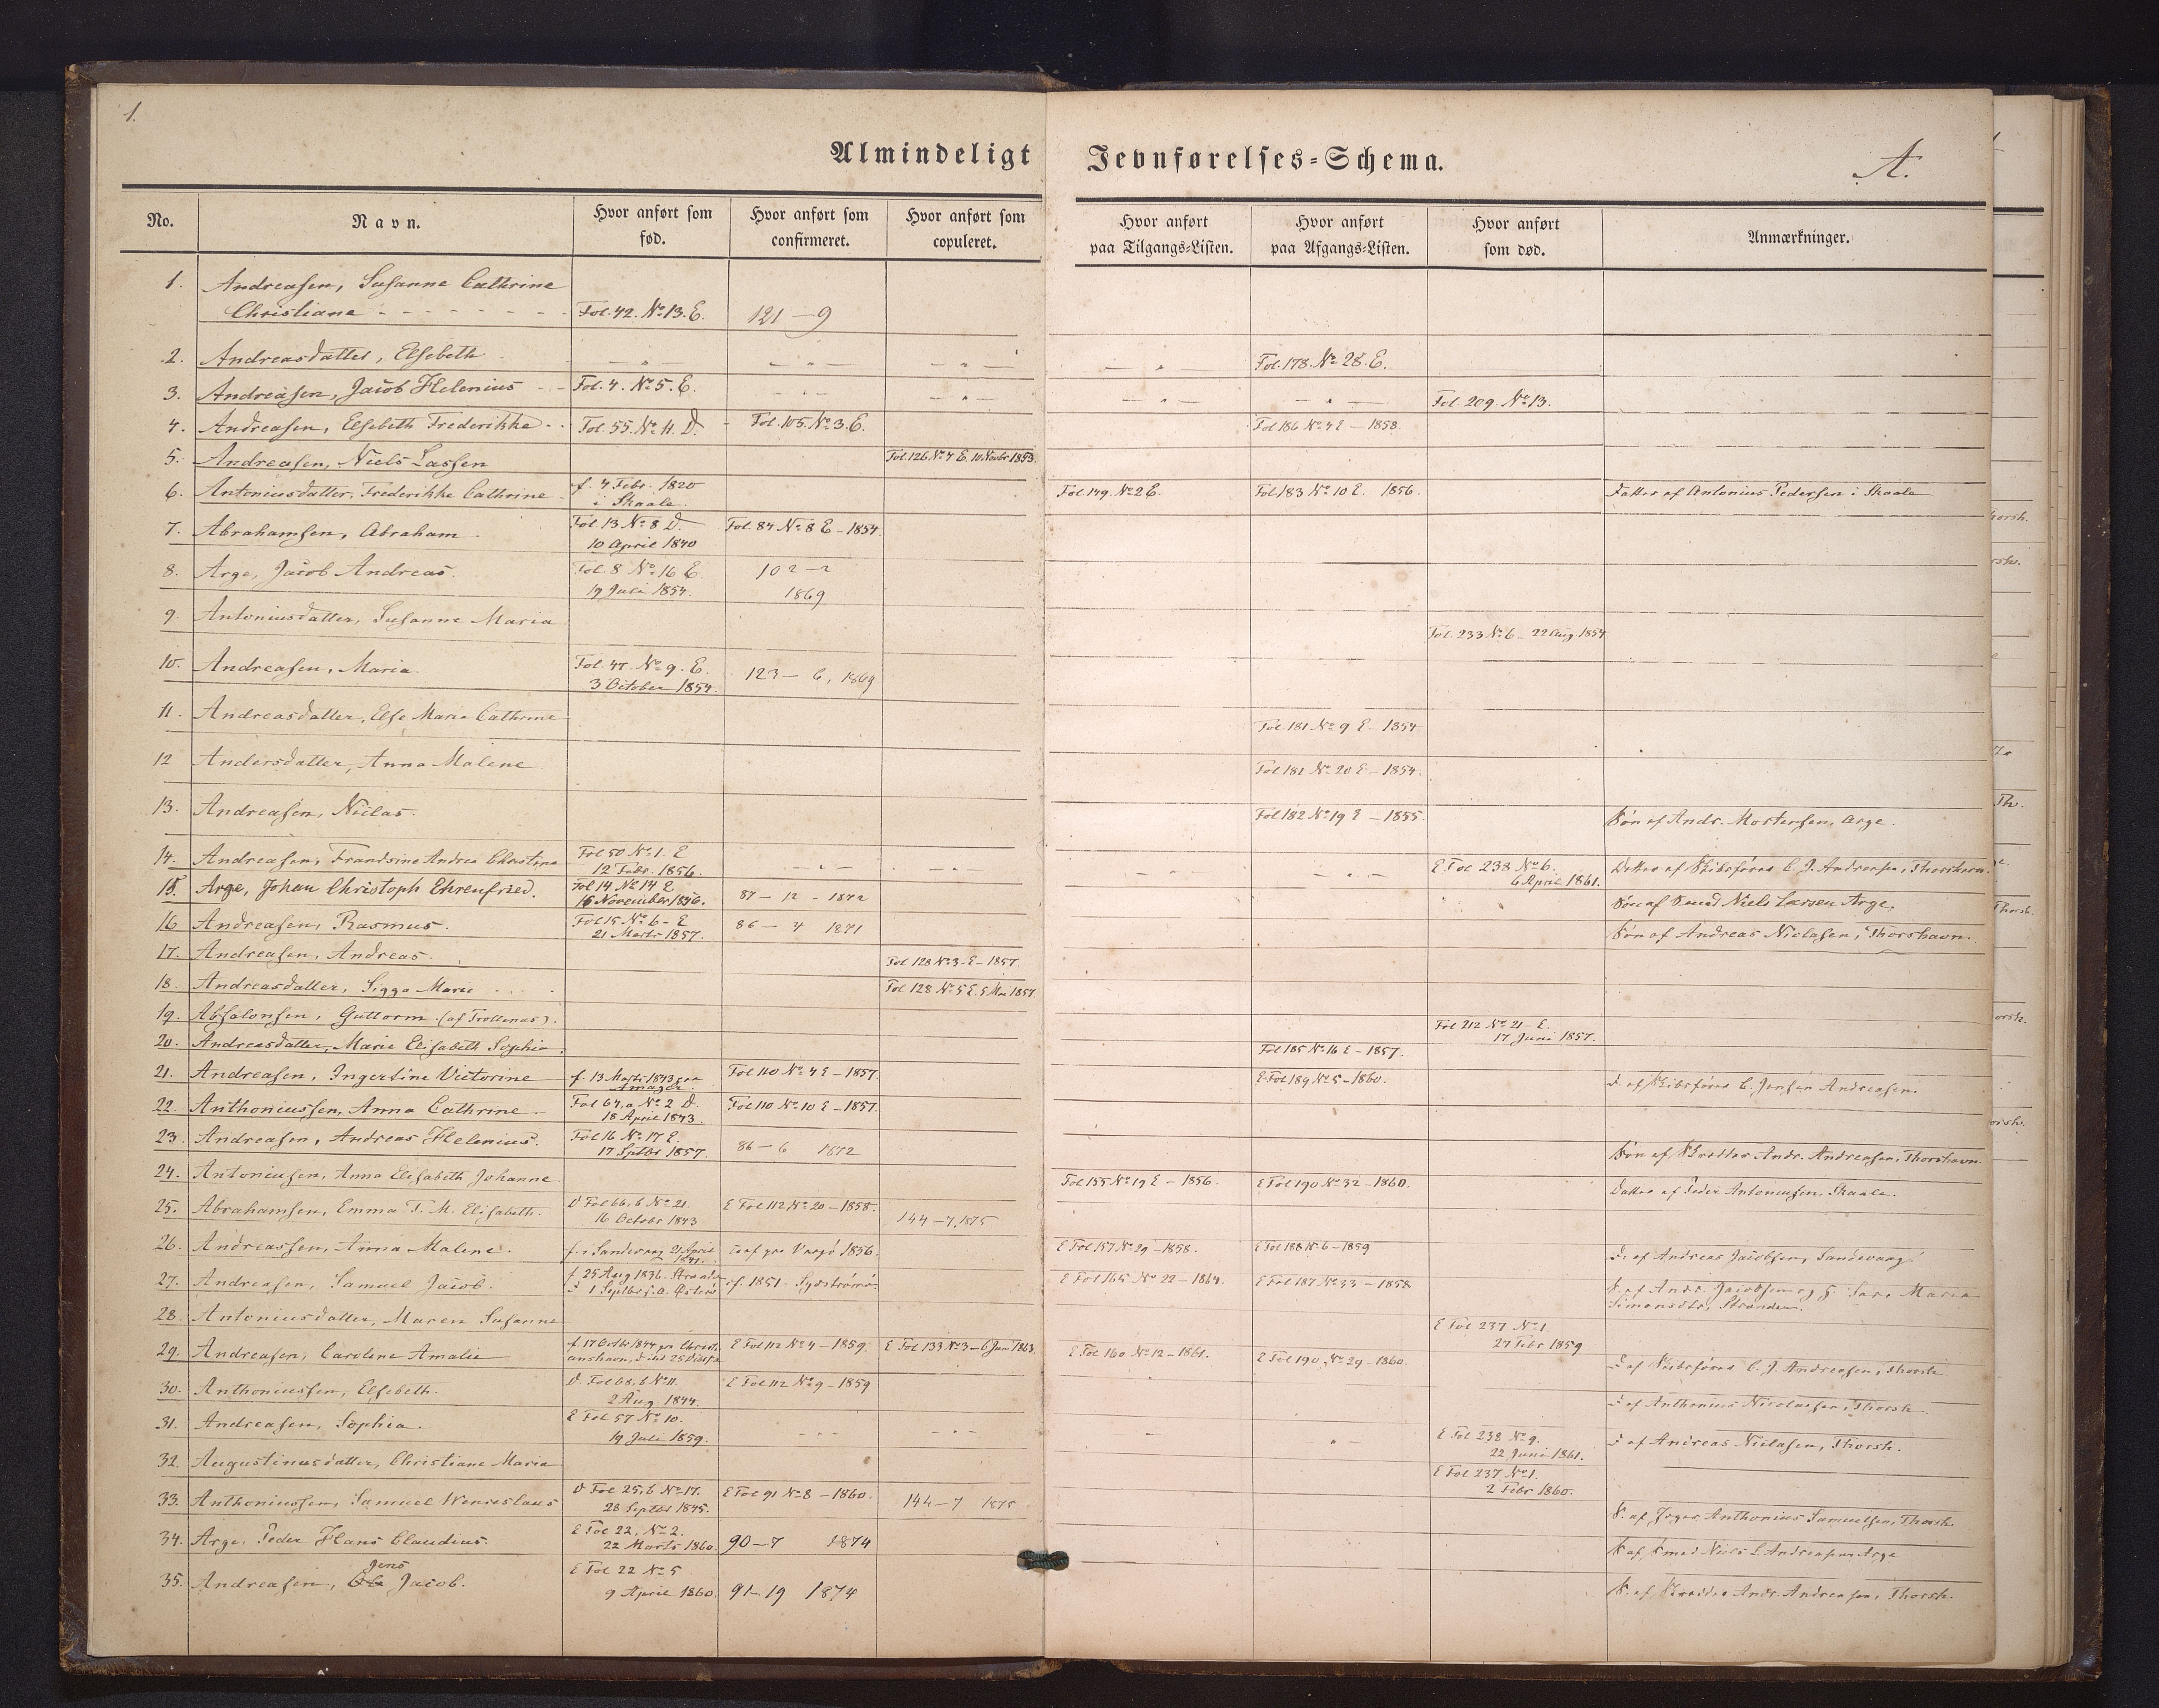 1.
Almindeligt Jevnførelses-Schema.
A.
No. Navn. Hvor anført som fød. Hvor anført som confirmeret. Hvor anført som copuleret. Hvor anført paa Tilgangs-Listen. Hvor anført paa Afgangs-Listen. Hvor anført som død. Anmærkninger.
1. Andreasen, Susanne Cathrine
Christiane Fol. 42. No 13. E. 121 — 9
2. Andreasdatter, Elsebeth — „ — — „ — — „ — — „ — Fol. 178. No 28. E.
3. Andreasen, Jacob Helenius Fol. 4. No 5. E. — „ — — „ — — „ — — „ — Fol. 209. No 13.
4. Andreasen, Elsebeth Frederikke Fol. 55. No 11. D. Fol. 105. No 3. E. Fol 186 No 4 E — 1858.
5. Andreasen, Niels Lassen Fol. 126. No 4 E. 10. Novbr 1853.
6. Antoniusdatter, Frederikke Cathrine f. 4 Febr. 1820 Fol. 149. No 2 E. Fol 183 No 10 E. 1856. Datter af Antonius Pedersen i Skaale
i Skaale.
7. Abrahamsen, Abraham. Fol 13 No 8 D. Fol. 84 No 8 E — 1854.
10 April 1840
8. Arge, Jacob Andreas. Fol. 8 No 16 E. 102 — 2
19 Juli 1854. 1869
9. Antoniusdatter, Susanne Maria Fol. 233 No 6 — 22 Aug. 1854
10. Andreasen, Maria. Fol. 47. No 9. E. 123 — 6, 1869
3 October 1854.
11. Andreasdatter, Else Marie Cathrine Fol 181 No 9 E — 1854
12 Andersdatter, Anna Malene Fol 181 No 20 E — 1854.
13. Andreasen, Niclas. Fol 182 No 19 E — 1855. Søn af Andr. Mortensen, Arge.
14. Andreasen, Frandsine Andrea Christine Fol 50 No 1. E — „ — — „ — — „ — E Fol 238 No 6. Datter af Skibsfører C. J. Andreasen, Thorshavn.
12 Febr. 1856. 6 April 1861.
15. Arge, Johan Christoph Ehrenfried. Fol 14 No 14 E 87 — 12 — 1872 Søn af Smed Niels Larsen Arge.
15 November 1856.
16 Andreasen, Rasmus. Fol 15 No 6 - E 86 — 4 1871 Søn af Andreas Niclasen, Thorshavn.
21 Marts 1857.
17. Andreasen, Andreas. Fol 128 No 3 - E — 1857.
18. Andreasdatter, Sigga Marie Fol. 128 No 5 E. 5 Mai 1857.
19. Absalonsen, Guttorm (af Trollenæs). Fol 212 No 21 - E.
17 Juni 1857.
20. Andreasdatter, Marie Elisabeth Sophie. Fol 185 No 16 E — 1857.
21. Andreasen, Ingertine Victorine f. 13 Marts 1843 paa Fol 110 No 4 E — 1857. E Fol 189 No 5 — 1860. D. af Skibsfører C. Jensen Andreasen.
Amager.
22. Anthoniussen, Anna Cathrine Fol 64, a No 2 D. Fol 110 No 10 E — 1857.
18 April 1843.
23. Andreasen, Andreas Helenius. Fol 16 No 17 E. 86 — 6 1872 Søn af Skrædder Andr. Andreasen, Thorshavn.
17 Sptbr 1857.
24. Antoniusen, Anna Elisabeth Johanne Fol 155 No 19 E — 1856. E Fol 190 No 32 — 1860. Datter af Peder Antoniusen, Skaale.
25. Abrahamsen, Emma T. M. Elisabeth. D Fol 66, b No 21. E Fol 112 No 20 — 1858. 144 — 7, 1875
16 October 1843
26. Andreassen, Anna Malene. f. i Sandevaag 21 April conf paa Vaagø 1856. E Fol 157 No 29 — 1858. E Fol 188 No 6 — 1859 D. af Andreas Jacobsen, Sandevaag.
1841.
27. Andreasen, Samuel Jacob. f 25 Aug 1836 - Strand. cf. 1851 - Sydstrømø. E Fol 165 No 22 — 1864. E Fol 187 No 33 — 1858 S. af Andr. Jacobsen og H. Sara Maria
Simonsdtr, Stranden.
28. Antoniusdatter, Maren Susanne E Fol 237 No 1.
27 Febr 1859
29. Andreasen, Caroline Amalie f. 17 Octbr 1844 paa Christi- E Fol 112 No 4 — 1859. E Fol 133 No 3 — 6 Jan 1863. E Fol 160 No 12 — 1861. E Fol 190 No 29 — 1860. D af Skibsfører C. J. Andreasen, Thorsh.
anshavn,
30. Anthoniussen, Elsebeth. D. Fol 68, b No 11. E Fol 112 No 9 — 1859 D af Anthonius Nicolaisen, Thorsh.
2 Aug. 1844.
31. Andreasen, Sophia. E Fol 57 No 10. — „ — — „ — — „ — E Fol 238 No 9. D af Andreas Niclasen, Thorsh.
19 Juli 1859. 22 Juni 1861.
32. Augustinusdatter, Christiane Maria E Fol 237 No 1.
2 Febr 1860.
33. Anthoniussen, Samuel Wenceslaus D Fol 25, b No 17. E Fol 91 No 8 — 1860. 144 — 7 1875 S. af Anthonius Samuelsen, Thorsh.
28 Septbr 1845.
34. Arge, Peder Hans Claudius. E Fol 22, No 2. 90 — 7 1874 S af Smed Niels L Andreasen Arge
22 Marts 1860.
Jens
35. Andreasen, Ole Jacob. E Fol 22 No 5 91 — 19 1874 S. af Skrædder Andr. Andreasen, Thorsh.
9 April 1860.